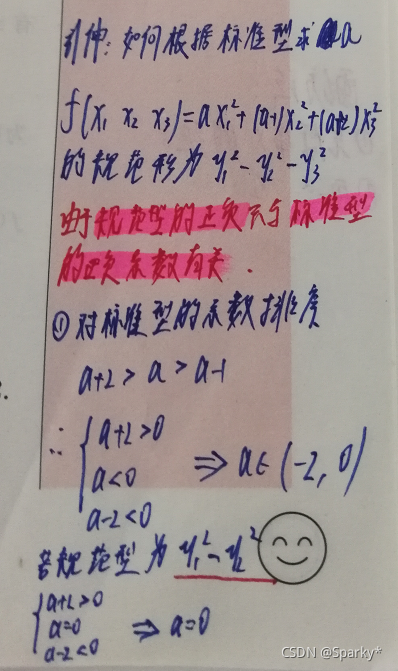 引伸:如何根据标准型求a
f(x₁ x₂ x₃)=ax₁²+(a-1)x₂²+(a+2)x₃²
的规范形为 y₁²-y₂²-y₃²
由于规范型的正负只与标准型
的正负系数有关.
① 对标准型的系数排序
a+2>a>a-1
∴ { a+2>0
a<0 ⇒ a∈(-2,0)
a-2<0
若规范型为 y₁²-y₂²
{ a+2>0
a=0 ⇒ a=0
a-2<0
CSDN @Sparky*